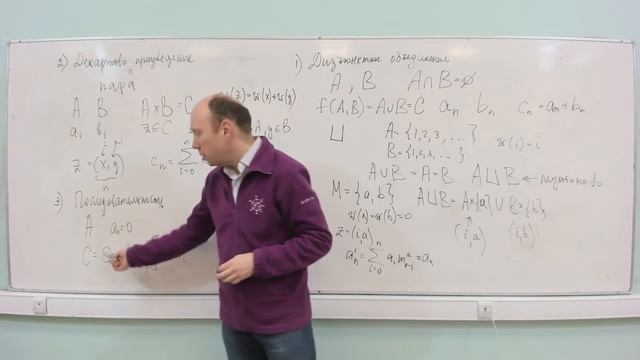 2) Декартово произведение
"пара"
A B A×B = C
w(z)=w(x)+w(y)
a_i b_i z∈C
A, y∈B
z = (x, y)
n
c_n = Σ i=0 n
3) Последовательность
A a_0=0
C =
1) Дизъюнктное объединение
A, B A∩B=∅
f(A,B)=A∪B=C a_n b_n c_n = a_n + b_n
⊔ A={1,2,3,...} w(i)=i
B={1,2,3,...}
A∪B=A=B A⊔B ←
M={a,b} A⊔B = A×{a} ∪ B×{b}
w(a)=w(b)=0
z=(i,a) n (i,a) (i,b)
a'_n = Σ i=0 n a_i m^a_{n-i} = a_n